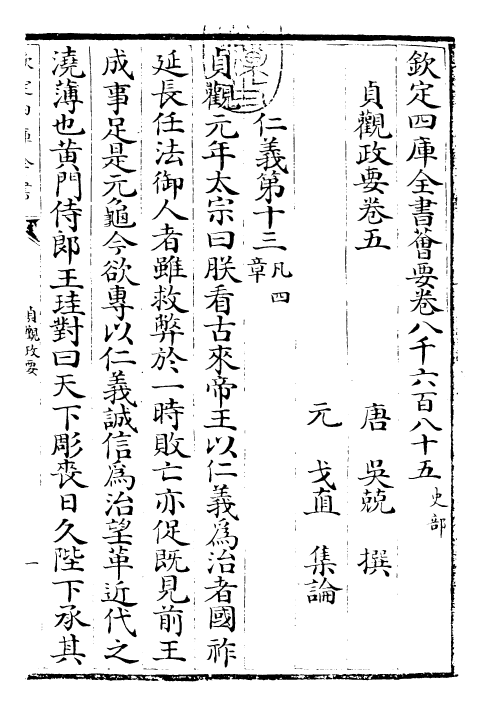 欽定四庫全書薈要卷八千六百八十五 史部
貞觀政要卷五
唐 吳兢 撰
元 戈直 集論
仁義第十三 凡四章
貞觀元年太宗曰朕看古來帝王以仁義爲治者國祚
延長任法御人者雖救弊於一時敗亡亦促既見前王
成事足是元龜今欲專以仁義誠信爲治望革近代之
澆薄也黄門侍郎王珪對曰天下彫喪日久陛下承其
欽定四庫全書
貞觀政要
一